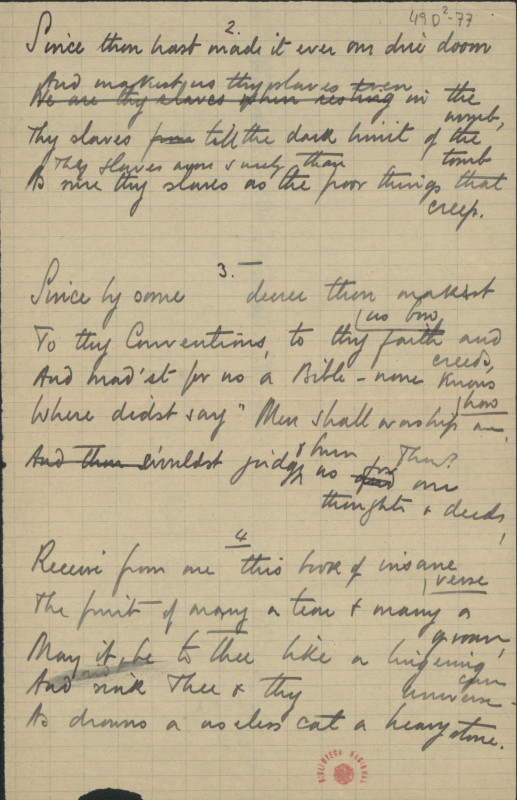 49D²-77
2.
Since thou hast made it ever our due doom
And makest us thy slaves even
We are thy slaves when resting in the
womb,
Thy slaves from till the dark limit of the
tomb
Thy slaves more surely than
As sure thy slaves as the poor things that
creep.
3.
Since by some decree thou makest
us bow
To thy Conventions, to thy faith and
creeds,
And mad'st for us a Bible - none knows
how
Where didst say "Men shall worship me,
And thou shouldst judge us for our
Thou?
thoughts & deeds,
4
Receive from me this book of insane
verse
The fruit of many a tear & many a
groan,
May it be to Thee like a lingering
curse
And sink Thee & thy universe
As drowns a useless cat a heavy stone.
BIBLIOTECA NACIONAL